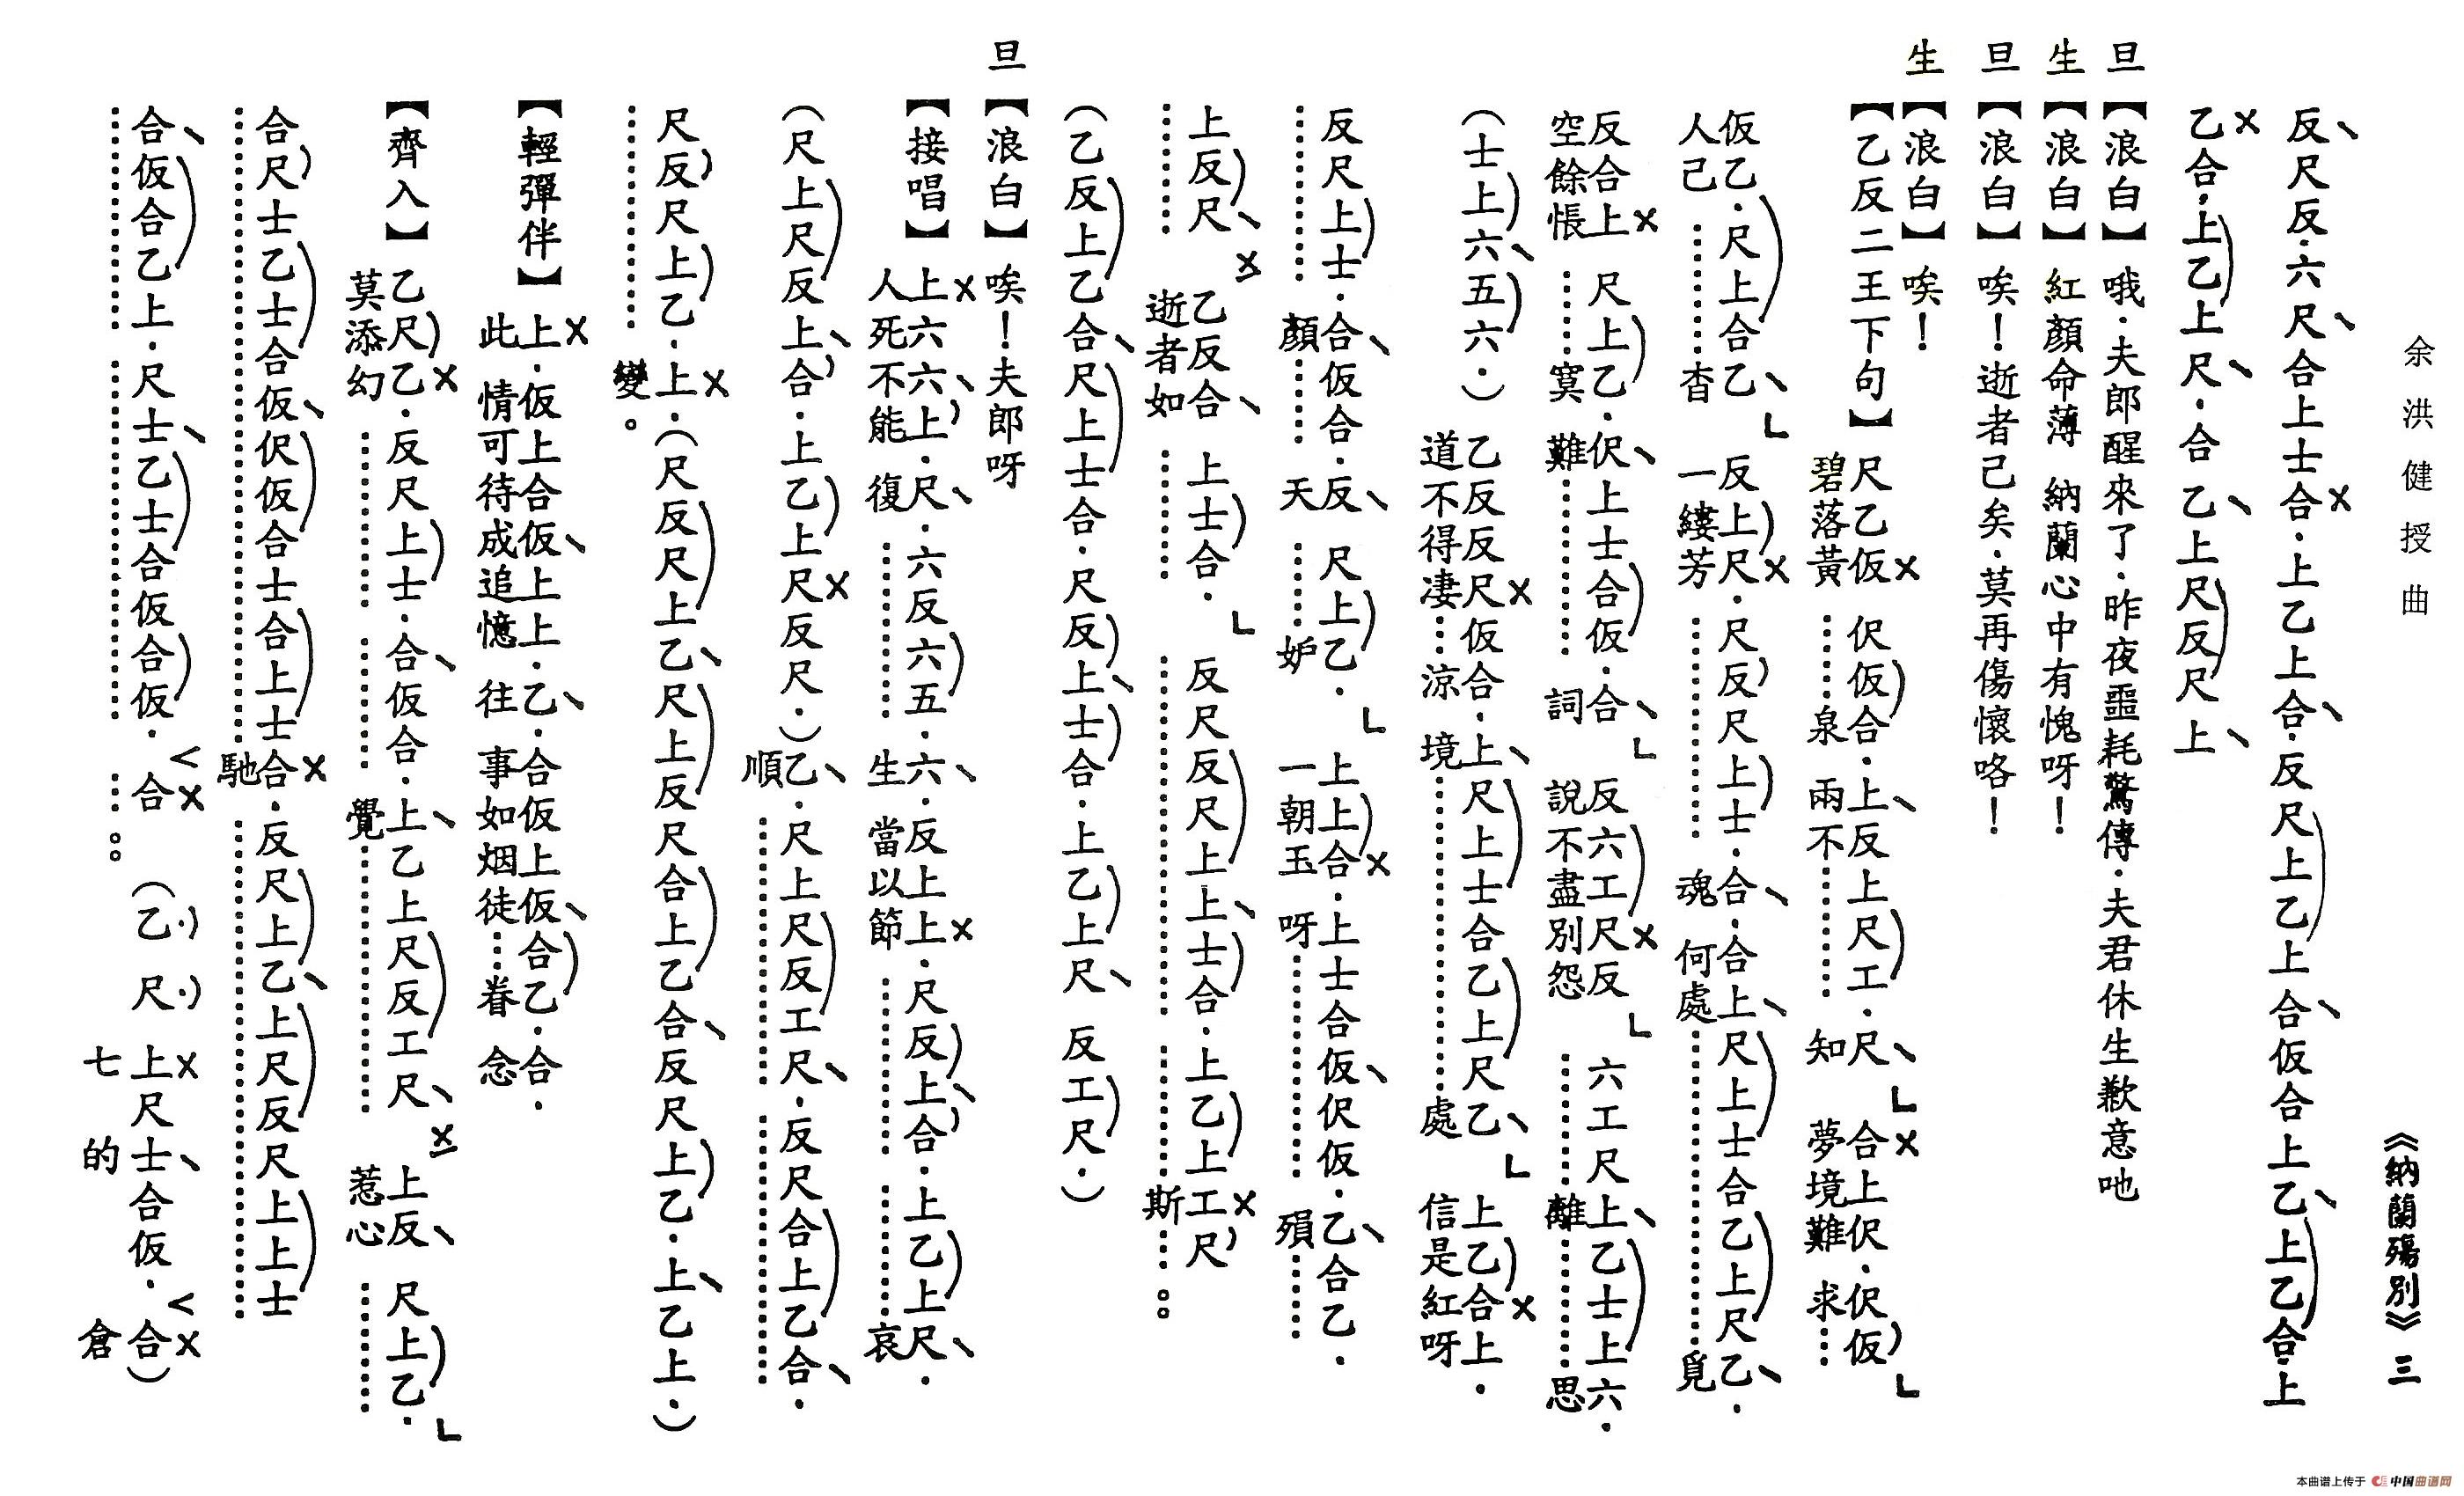 余洪健授曲
《納蘭殤別》三
反尺反.六尺合上士合.上乙上合.反尺上乙上合仮合上乙上乙合.上
乙合.上乙上尺.合乙上尺反尺上
旦【浪白】哦.夫郎醒來了.昨夜噩耗驚傳.夫君休生歉意吔
生【浪白】紅顏命薄 納蘭心中有愧呀！
旦【浪白】唉！逝者己矣.莫再傷懷咯！
生【浪白】唉！
【乙反二王下句】尺乙仮伬仮合.上反上尺工.尺合上伬.伬仮
碧落黃……泉兩不……知夢境難求…
仮乙.尺上合乙反上尺.尺反尺上士.合.合上尺上士合乙上尺乙.
人己……杳一縷芳……魂何處……覓
反合上尺上乙.伬上士合仮.合反六工尺反六工尺上乙士上六.
空餘悵……寞難……詞說不盡別怨……離……思
（士上六五六.）乙反反尺仮合.上尺上士合乙上尺乙上乙合上.
道不得凄…涼境……處信是紅呀
反尺上士.合仮合.反尺上乙.上上合.上士合仮伬仮.乙合乙.
……顏……天……妒一朝玉呀……殞……
上反尺乙反合上士合.反尺反尺上上士合.上乙上工尺
……逝者如……斯…。
（乙反上乙合尺上士合.尺反上士合.上乙上尺反工尺.）
旦【浪白】唉！夫郎呀
【接唱】上六六上.尺.六反六五.六.反上上.尺反上合.上乙上尺.
人死不能復……生當以節……哀
（尺上尺反上合.上乙上尺反尺.）乙.尺上尺反工尺.反尺合上乙合.
順……
尺反尺上乙.上.（尺反尺上乙尺上反尺合上乙合反尺上乙.上乙上.）
……變。
【輕彈伴】上.仮上合仮上上.乙.合仮上仮合乙.合.
此情可待成追憶往事如烟徒…眷念
【齊入】乙尺乙.反尺上士.合仮合.上乙上尺反工尺上反尺上乙.
莫添幻……覺……惹心……
合尺士乙士合仮伬仮合士合上士合.反尺上乙上尺反尺上上士
……馳……
合仮合乙上.尺士乙士合仮合仮.合（乙.尺.上尺士合仮.合）
……。
七的倉
本曲谱上传于 中国曲谱网